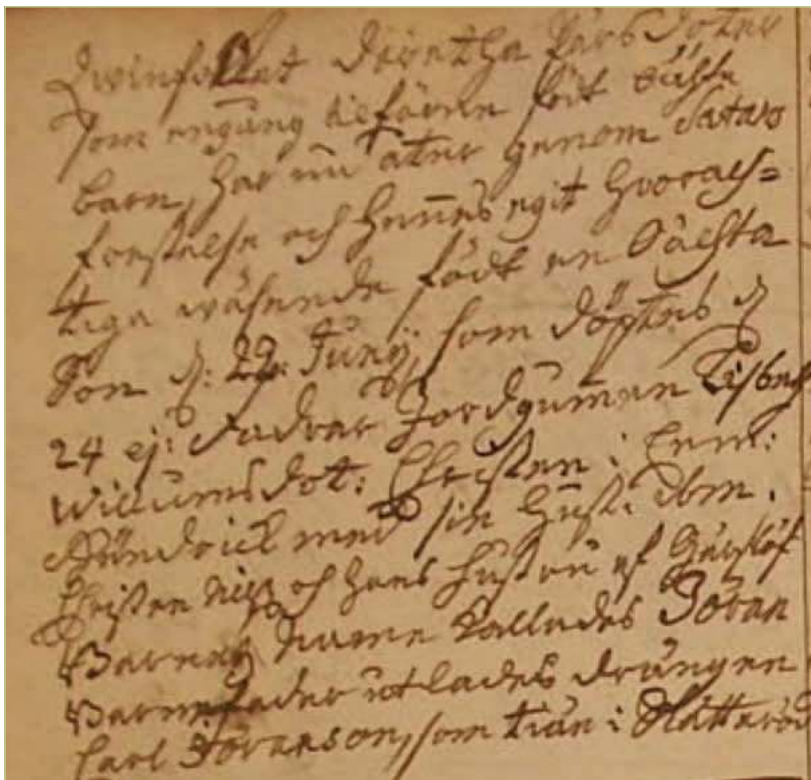 Qwinfolket Dorotha Larsdoter
som engång tilförne födt oächta
barn, har nu åter genom Satans
förförelse och hennes egit
tiga wäsende födt en Oächta
Son d: 22 Junij som döptes d
24 ej: Fadrar Jordgumman Lisbeth
Willumsdot: Christen i
med sin Hust: ibm.
Christen Nilß och hans hustru af
Barnetz namn kallades Jöran
Barnefader utlades drängen
Carl Jöranson, som tiän i